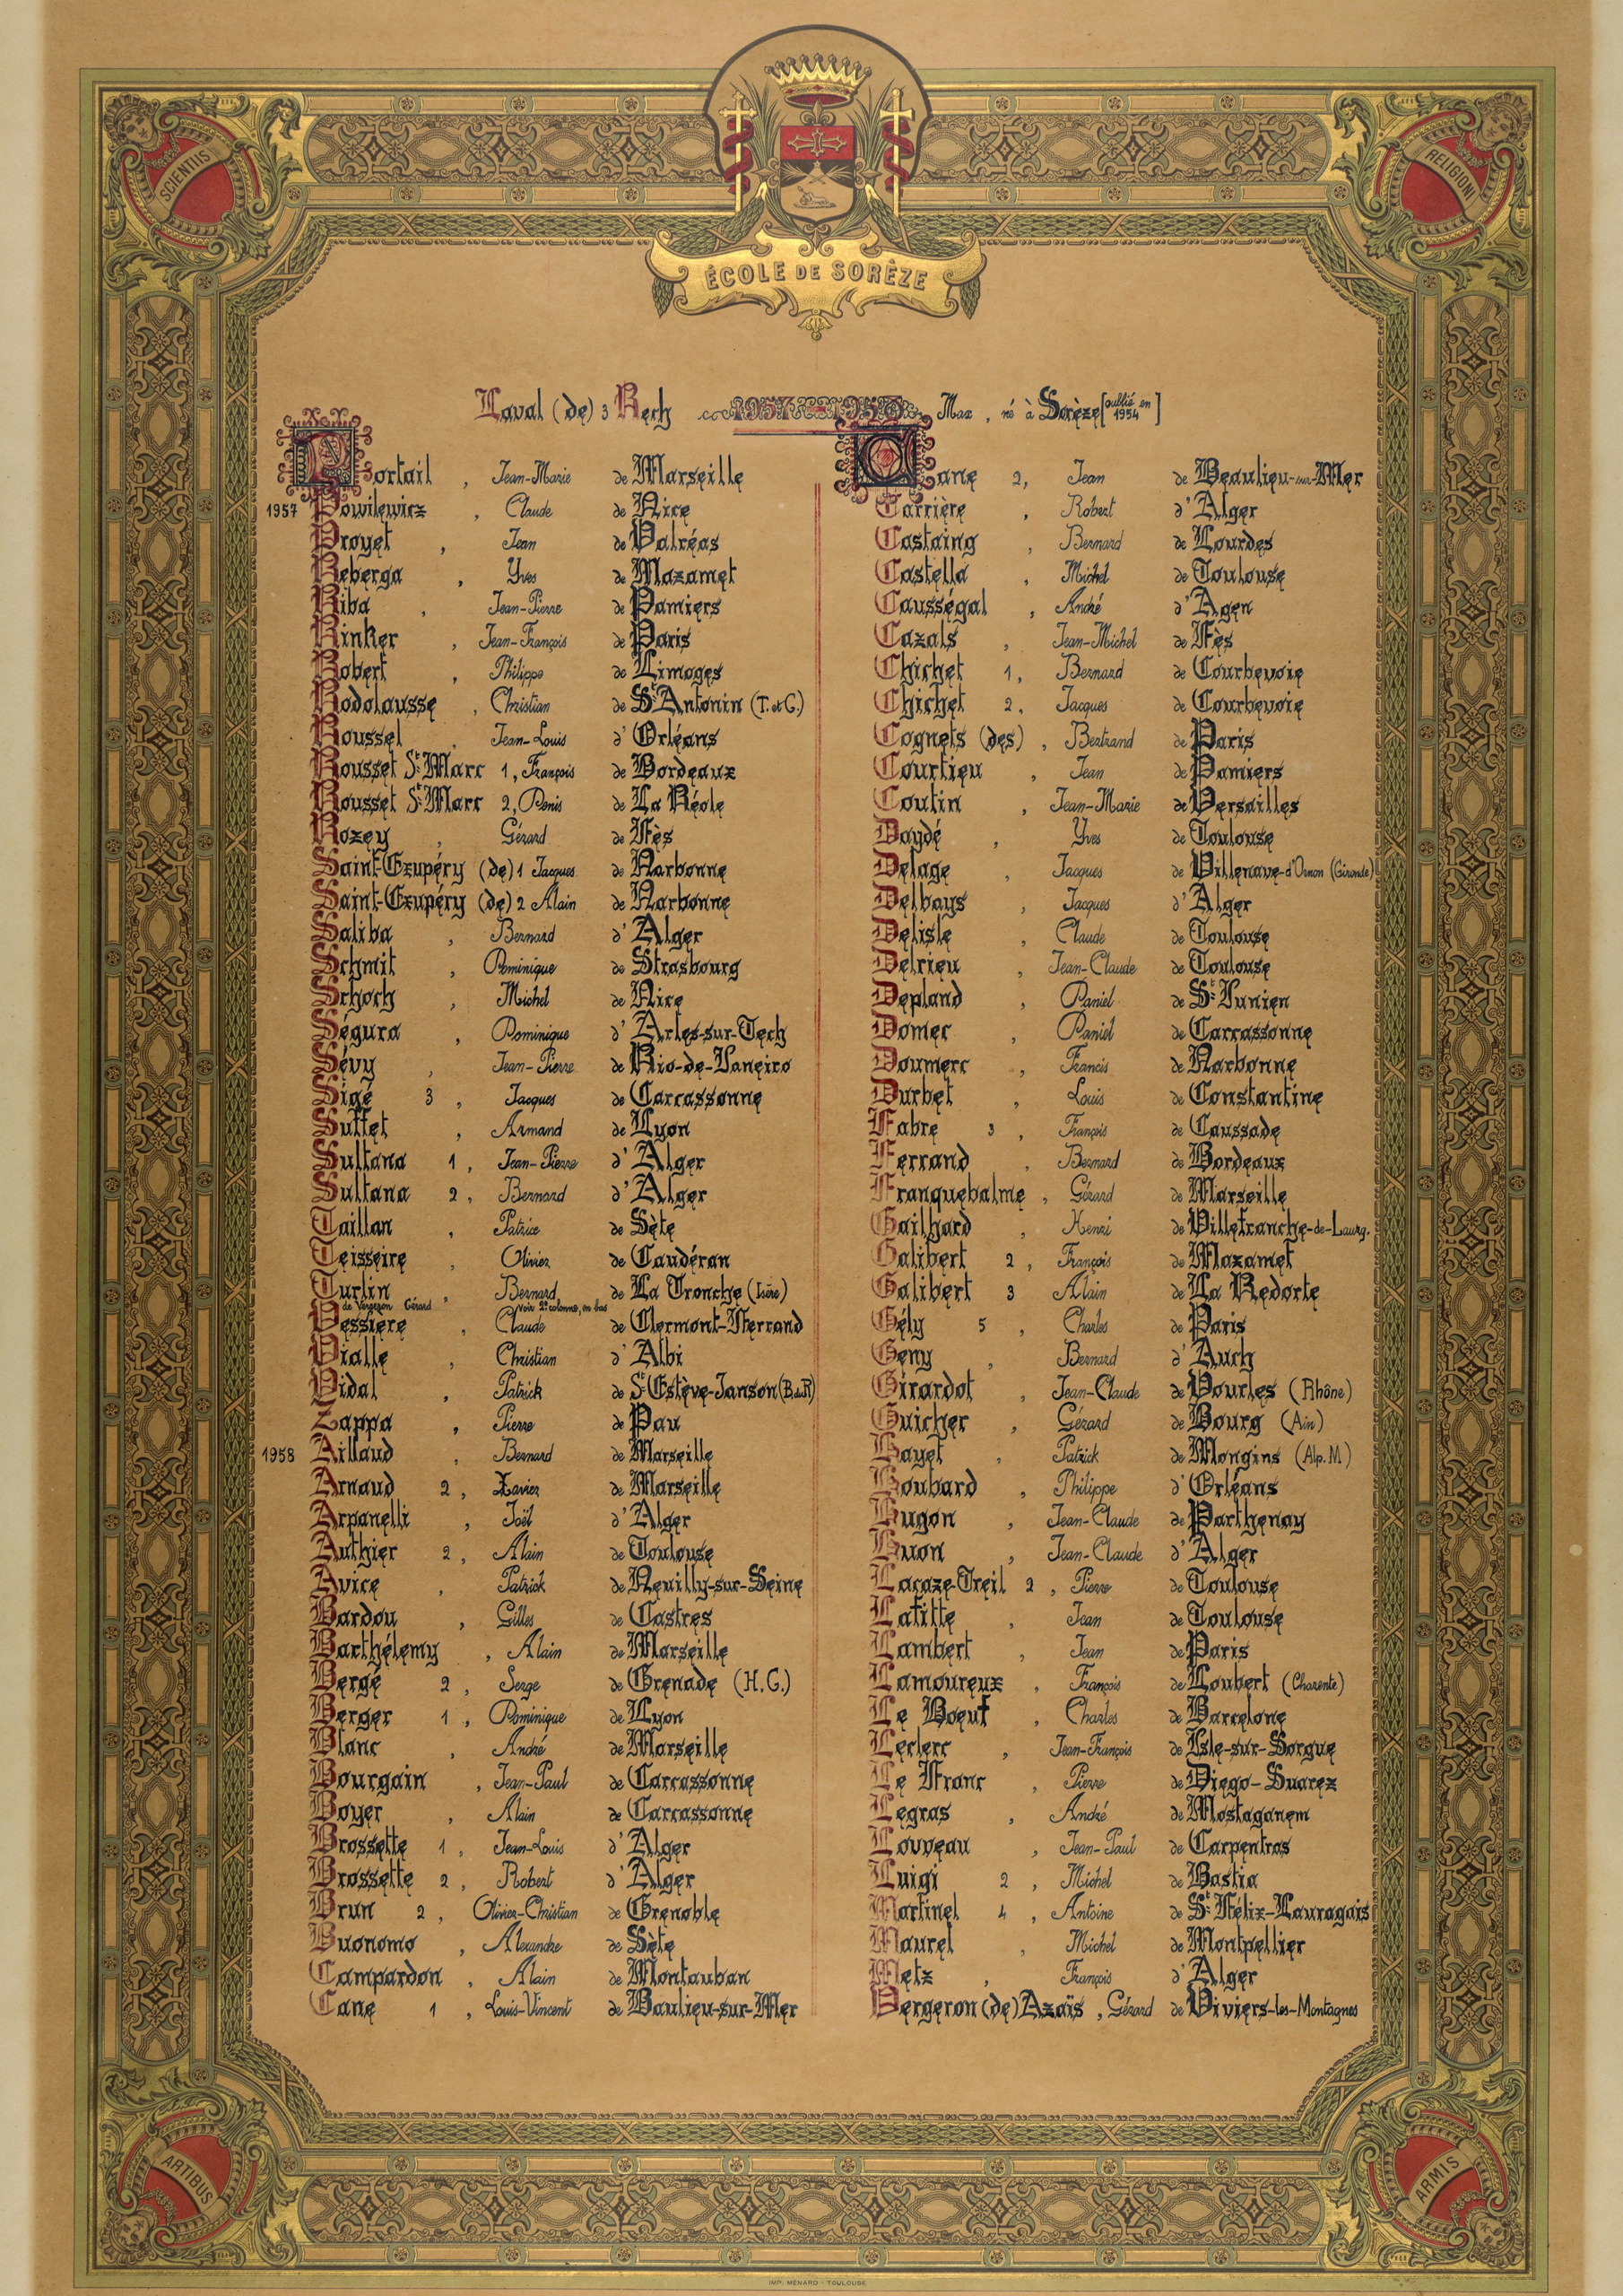 SCIENTIIS
RELIGIONI
ÉCOLE DE SORÈZE
Laval (de) 3 Rech 1957-1958 Max, né à Sorèze [oublié en 1954]
Portail, Jean-Marie de Marseille
1957 Powilewicz, Claude de Nice
Proyet, Jean de Valréas
Reberga, Yves de Mazamet
Riba, Jean-Pierre de Pamiers
Rinker, Jean-François de Paris
Robert, Philippe de Limoges
Rodolausse, Christian de St Antonin (T. et G.)
Roussel, Jean-Louis d'Orléans
Rousset St Marc 1, François de Bordeaux
Rousset St Marc 2, Denis de La Réole
Rozey, Gérard de Fès
Saint-Exupéry (de) 1 Jacques de Narbonne
Saint-Exupéry (de) 2 Alain de Narbonne
Saliba, Bernard d'Alger
Schmit, Dominique de Strasbourg
Schoch, Michel de Nice
Ségura, Dominique d'Arles-sur-Tech
Sévy, Jean-Pierre de Rio-de-Janeiro
Sigé 3, Jacques de Carcassonne
Suffet, Armand de Lyon
Sultana 1, Jean-Pierre d'Alger
Sultana 2, Bernard d'Alger
Taillan, Patrice de Sète
Teisseire, Olivier de Caudéran
Turlin, Bernard de La Tronche (Isère)
de Vergeron Gérard voir 2e colonne, en bas
Vessière, Claude de Clermont-Ferrand
Vialle, Christian d'Albi
Vidal, Patrick de St Estève-Janson (B.du R)
Zappa, Pierre de Pau
1958 Aillaud, Bernard de Marseille
Arnaud 2, Xavier de Marseille
Arpanelli, Joël d'Alger
Authier 2, Alain de Toulouse
Avice, Patrick de Neuilly-sur-Seine
Bardou, Gilles de Castres
Barthélemy, Alain de Marseille
Bergé 2, Serge de Grenade (H.G.)
Berger 1, Dominique de Lyon
Blanc, André de Marseille
Bourgain, Jean-Paul de Carcassonne
Boyer, Alain de Carcassonne
Brossette 1, Jean-Louis d'Alger
Brossette 2, Robert d'Alger
Brun 2, Olivier-Christian de Grenoble
Buonomo, Alexandre de Sète
Campardon, Alain de Montauban
Cane 1, Louis-Vincent de Baulieu-sur-Mer
Cane 2, Jean de Beaulieu-sur-Mer
Carrière, Robert d'Alger
Castaing, Bernard de Lourdes
Castella, Michel de Toulouse
Causségal, André d'Agen
Cazals, Jean-Michel de Fès
Chichet 1, Bernard de Courbevoie
Chichet 2, Jacques de Courbevoie
Cognets (des), Bertrand de Paris
Courtieu, Jean de Pamiers
Coutin, Jean-Marie de Versailles
Daydé, Yves de Toulouse
Delage, Jacques de Villenave-d'Ornon (Gironde)
Delbays, Jacques d'Alger
Delisle, Claude de Toulouse
Delrieu, Jean-Claude de Toulouse
Depland, Daniel de St Junien
Domer, Daniel de Carcassonne
Doumerc, Francis de Narbonne
Durbet, Louis de Constantine
Fabre 3, François de Caussade
Ferrand, Bernard de Bordeaux
Franquebalme, Gérard de Marseille
Gailhard, Henri de Villefranche-de-Laurg.
Galibert 2, François de Mazamet
Galibert 3 Alain de La Redorte
Gély 5, Charles de Paris
Geny, Bernard d'Auch
Girardot, Jean-Claude de Vourles (Rhône)
Guicher, Gérard de Bourg (Ain)
Hayet, Patrick de Mongins (Alp.M)
Houbard, Philippe d'Orléans
Hugon, Jean-Claude de Parthenay
Huon, Jean-Claude d'Alger
Lacaze-Treil 2, Pierre de Toulouse
Lafitte, Jean de Toulouse
Lambert, Jean de Paris
Lamoureux, François de Loubert (Charente)
Le Bœuf, Charles de Barcelone
Leclerc, Jean-François de Isle-sur-Sorgue
Le Franc, Pierre de Diego-Suarez
Legras, André de Mostaganem
Louveau, Jean-Paul de Carpentras
Luigi 2, Michel de Bastia
Martinel 4, Antoine de St Félix-Lauragais
Maurel, Michel de Montpellier
Metz, François d'Alger
Vergeron (de) Azaïs, Gérard de Viviers-les-Montagnes
ARTIBUS
ARMIS
IMP. MÉNARD - TOULOUSE